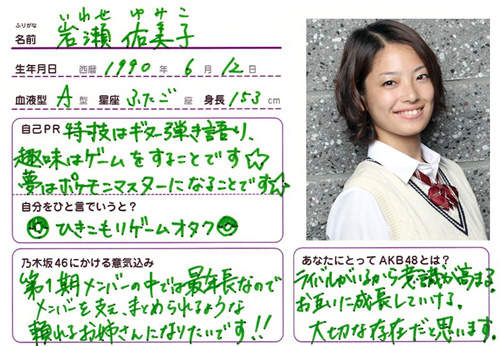 いわせ ゆみこ
ふりがな
名前 岩瀬 佑美子
生年月日 西暦 1990 年 6 月 12 日
血液型 A 型 星座 ふたご 座 身長 153 cm
自己PR 特技はギター弾き語り、
趣味はゲームをすることです☆
夢はポケモンマスターになることです☆
自分をひと言でいうと?
ひきこもりゲームオタク
乃木坂46にかける意気込み
第1期メンバーの中では最年長なので
メンバーを支え、まとめられるような
頼れるお姉さんになりたいです!!
あなたにとってAKB48とは?
ライバルがいるから意識が高まる。
お互いに成長していける。
大切な存在だと思います。